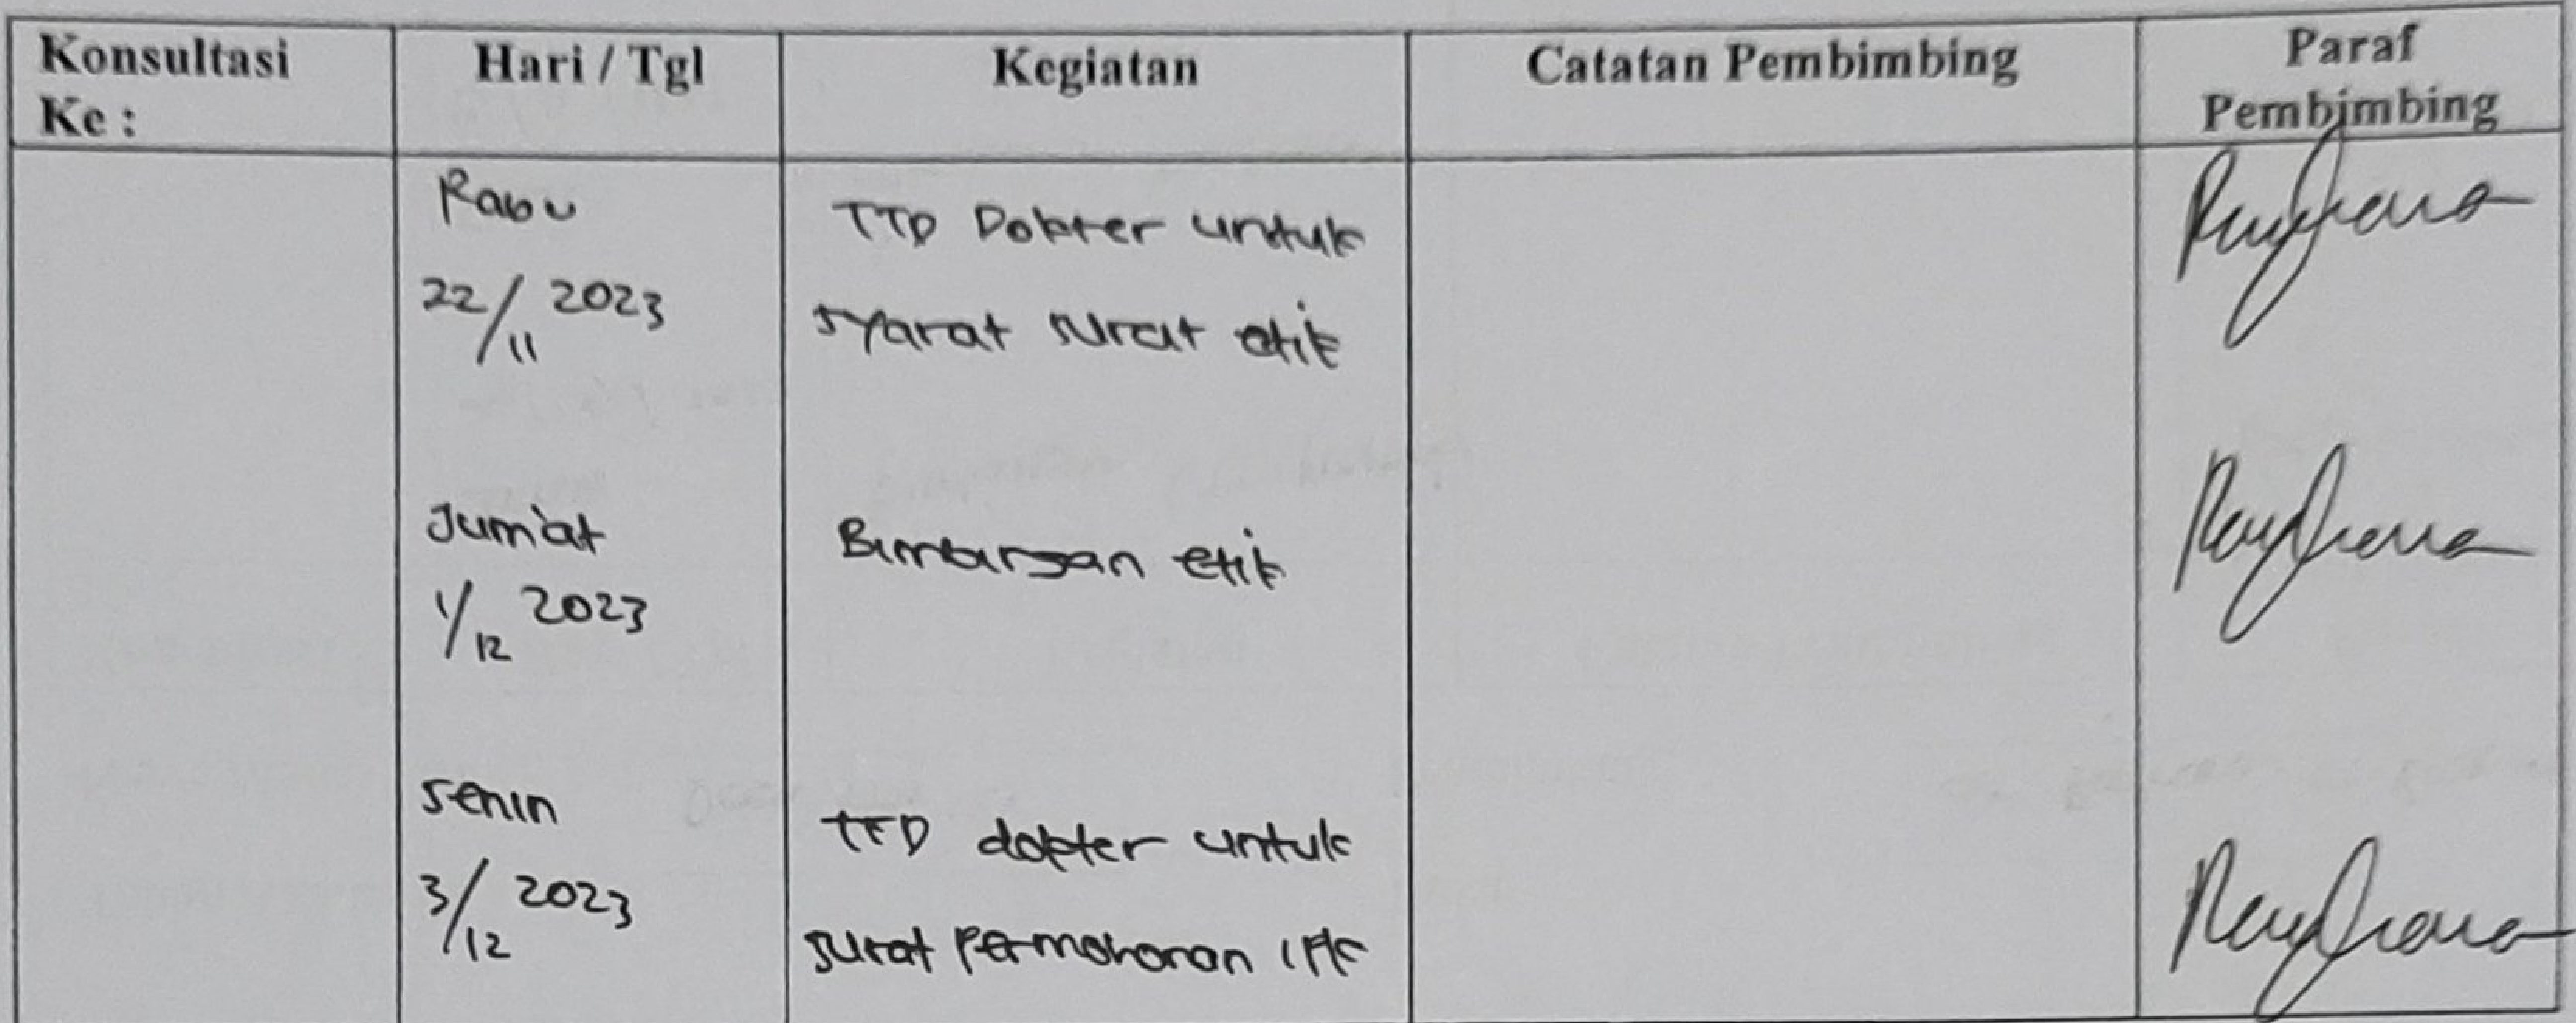 Konsultasi
Ke :
Hari / Tgl
Kegiatan
Catatan Pembimbing
Paraf
Pembimbing
Rabu
22/11 2023
TTD Dokter untuk
syarat surat etik
Jum'at
1/12 2023
Bimbingan etik
Senin
3/12 2023
TTD dokter untuk
surat Permohonan